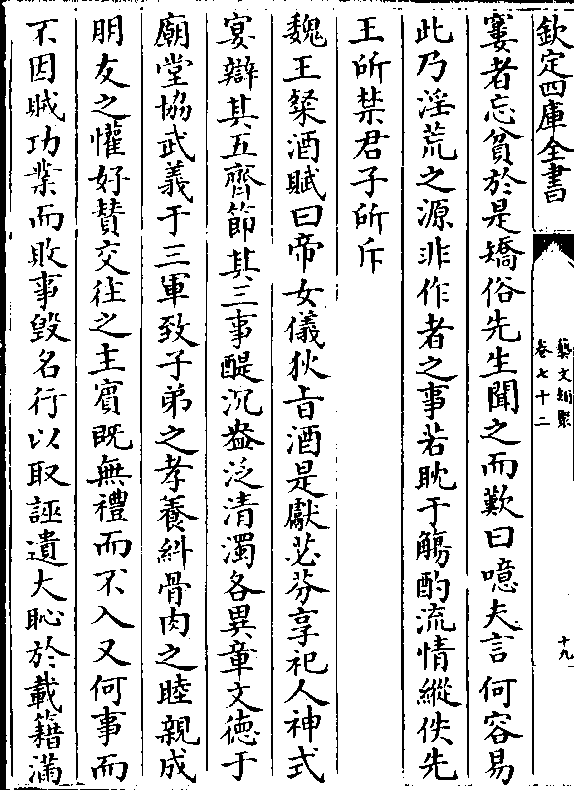 欽定四庫全書
藝文類聚
卷七十二
十九
窶者忘貧於是矯俗先生聞之而歎曰噫夫言何容易
此乃淫荒之源非作者之事若耽于觴酌流情縱佚先
王所禁君子所斥
魏王粲酒賦曰帝女儀狄旨酒是獻苾芬享祀人神式
宴辯其五齊節其三事醍沉盎泛清濁各異章文德于
廟堂協武義于三軍致子弟之孝養糾骨肉之睦親成
朋友之懽好賛交往之主賔既無禮而不入又何事而
不因賊功業而敗事毁名行以取誣遺大恥於載籍滿